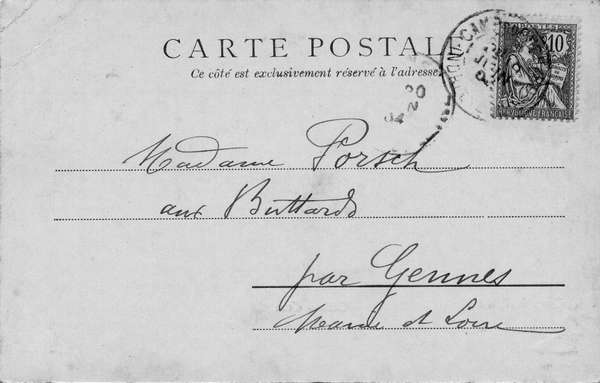 CARTE POSTALE
Ce côté est exclusivement réservé à l'adresse
10
Madame Porsch
aux Buttards
par Gennes
Maine et Loire